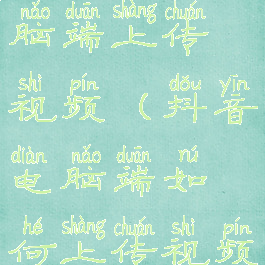 nǎo duān shàng chuán
脑端上传
shì pín dǒu yīn
视频(抖音
diàn nǎo duān rú
电脑端如
hé shàng chuán shì pín
何上传视频